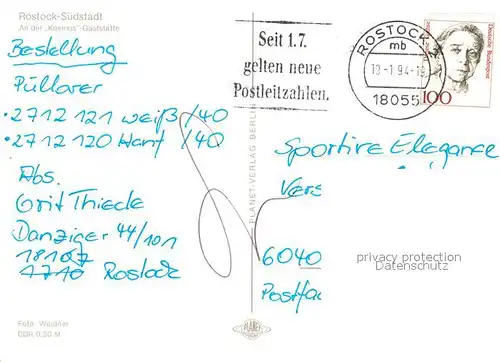 Rostock-Südstadt
An der „Kosmos"-Gaststätte
Bestellung
Püllover
• 2712 121 weiß /40
• 2712 120 Hanf /40
Abs.
Grit Thiede
Danziger 44/101
18107
2710 Rostock
Foto: Weidner
DDR 0,20 M
PLANET-VERLAG BERLIN
PLANET
Seit 1.7.
gelten neue
Postleitzahlen.
ROSTOCK 1
mb
18055
Deutsche Bundespost
100
Sportive Eleganz
Vers
6040
Postfac
privacy protection
Datenschutz